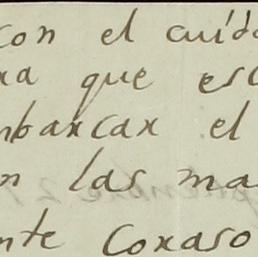 con el cuída
na que est
nbaxcax el
n las ma
nte Coxaso